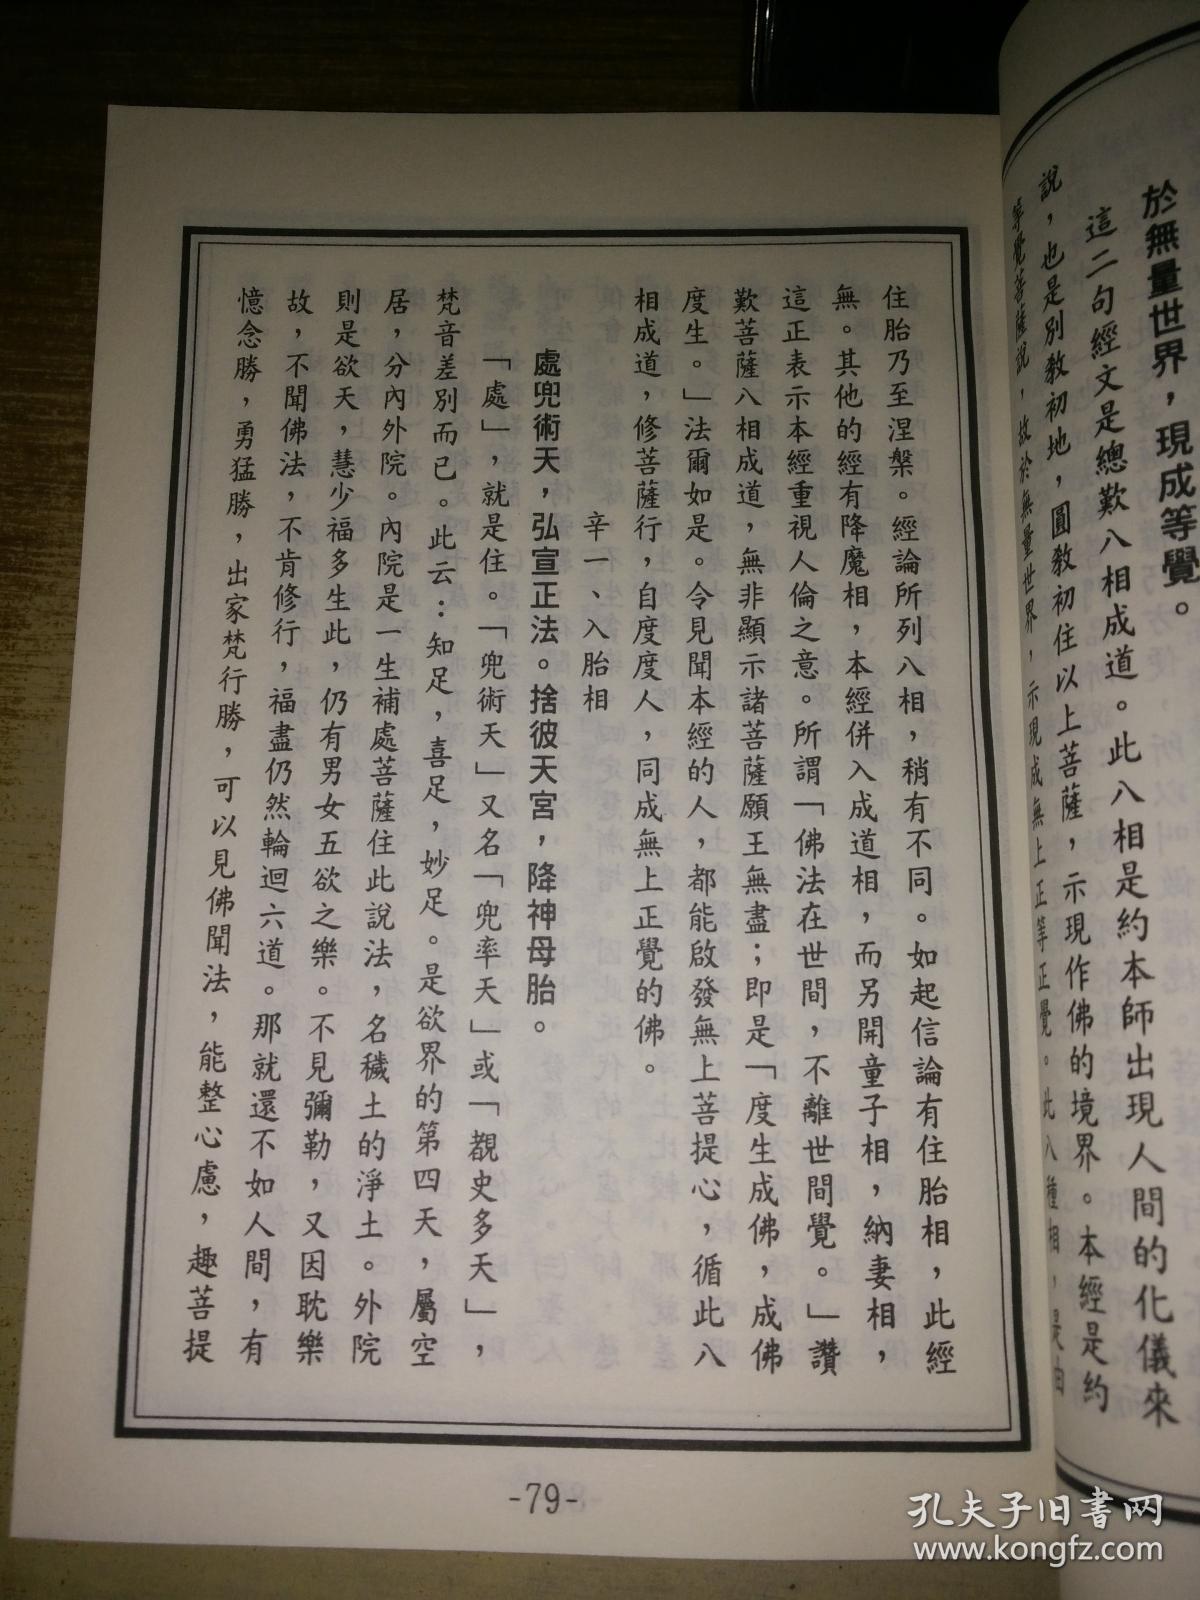 於無量世界，現成等覺。
這二句經文是總歎八相成道。此八相是約本師出現人間的化儀來
說，也是別教初地，圓教初住以上菩薩，示現作佛的境界。本經是約
等覺菩薩說，故於無量世界，示現成無上正等正覺。此八種相，是由
住胎乃至涅槃。經論所列八相，稍有不同。如起信論有住胎相，此經
無。其他的經有降魔相，本經併入成道相，而另開童子相，納妻相，
這正表示本經重視人倫之意。所謂「佛法在世間，不離世間覺。」讚
歎菩薩八相成道，無非顯示諸菩薩願王無盡；即是「度生成佛，成佛
度生。」法爾如是。令見聞本經的人，都能啟發無上菩提心，循此八
相成道，修菩薩行，自度度人，同成無上正覺的佛。
辛一、入胎相
處兜術天，弘宣正法。捨彼天宮，降神母胎。
「處」，就是住。「兜術天」又名「兜率天」或「覩史多天」，
梵音差別而已。此云：知足，喜足，妙足。是欲界的第四天，屬空
居，分內外院。內院是一生補處菩薩住此說法，名穢土的淨土。外院
則是欲天，慧少福多生此，仍有男女五欲之樂。不見彌勒，又因耽樂
故，不聞佛法，不肯修行，福盡仍然輪迴六道。那就還不如人間，有
憶念勝，勇猛勝，出家梵行勝，可以見佛聞法，能整心慮，趣菩提
-79-
孔夫子旧书网
www.kongfz.com